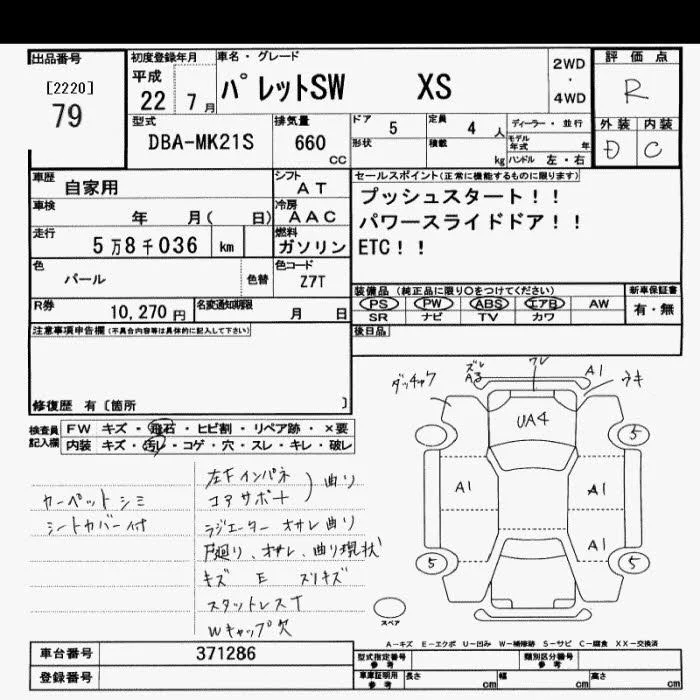 出品番号
[2220]
79
初度登録年月
平成
22 7月
車名・グレード
パレットSW XS
2WD
・
4WD
評価点
R
外装 内装
D C
型式
DBA-MK21S
排気量
660
CC
ドア 5
定員 4 人
形状
積載 kg
ディーラー・並行
モデル年式 年
ハンドル 左・右
車歴 自家用
シフト
AT
車検 年 月( 日)
冷房
AAC
走行
5万8千036 km
燃料
ガソリン
色
パール
色替
色コード
Z7T
R券
10,270円
名変通知期限
月 日
セールスポイント(正常に機能するものに限ります)
プッシュスタート!!
パワースライドドア!!
ETC!!
装備品(純正品に限り○をつけてください)
PS PW ABS エアB AW
SR ナビ TV カワ
新車保証書
有・無
後日品
注意事項申告欄(不具合内容等は具体的に記入して下さい)
修復歴 有〔箇所 〕
検査員
記入欄
FW キズ・飛石・ヒビ割・リペア跡・×要
内装 キズ・汚レ・コゲ・穴・スレ・キレ・破レ
カーペットシミ
シートカバー付
左Fインパネ
コアサポート
曲り
ラジエーター オサレ曲り
戸廻り、オサレ、曲り現状
キズ E スリキズ
スタットレスT
Wキャップ欠
ダッチャク
ズレ
A3
ワレ
A1
ウキ
UA4
5
A1
A1
A1
5
5
スペア
A-キズ E-エクボ U-凹み W-補修跡 S-サビ C-腐食 XX-交換済
車台番号 371286
登録番号
型式指定番号
参考
類別区分番号
参考
車庫証明用
参考
長さ cm
幅 cm
高さ cm